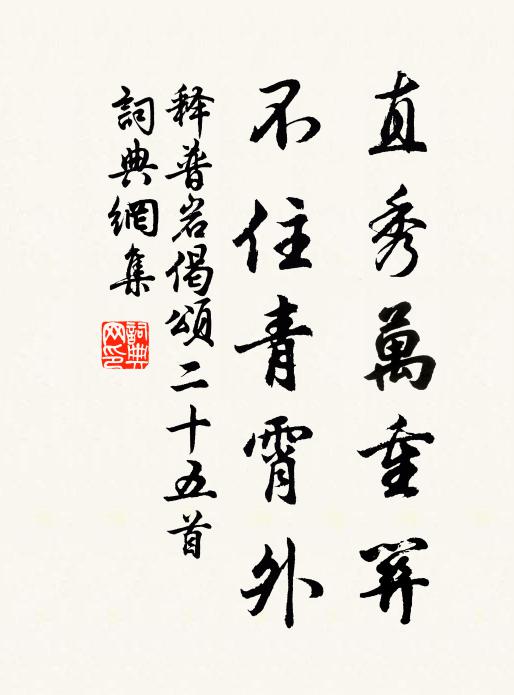 直秀萬重關
不住青霄外
释普岩偈頌二十五首
詞典網集
詞典网印